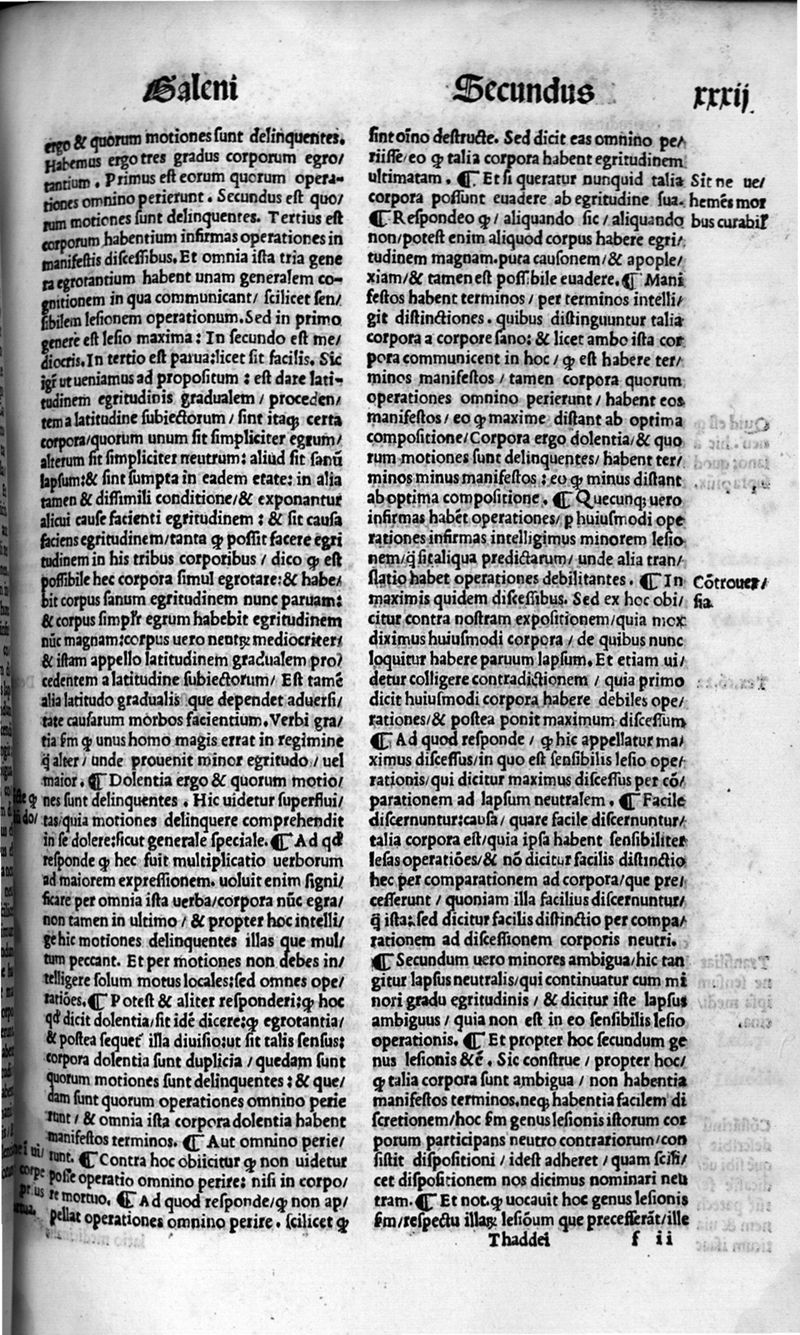 Galeni
Secundus
xxxij
ergo & quorum motiones sunt delinquentes.
Habemus ergo tres gradus corporum egro/
tantium. Primus est eorum quorum opera-
tiones omnino perierunt. Secundus est quo/
rum motiones sunt delinquentes. Tertius est
corporum habentium infirmas operationes in
manifestis discessibus. Et omnia ista tria gene
ra egrotantium habent unam generalem co-
gnitionem in qua communicant/ scilicet sen/
sibilem lesionem operationum. Sed in primo
genere est lesio maxima: In secundo est me/
diocris. In tertio est parua: licet sit facilis. Sic
igr̃ ut ueniamus ad propositum : est dare lati-
tudinem egritudinis gradualem/ proceden/
tem a latitudine subiectorum/ sint itaqꝫ certa
corpora/quorum unum sit simpliciter egrum/
alterum sit simpliciter neutrum: aliud sit sanũ
lapsum: & sint sumpta in eadem etate: in alia
tamen & dissimili conditione/& exponantur
alicui cause facienti egritudinem : & sit causa
faciens egritudinem/tanta ꝙ possit facere egri
tudinem in his tribus corporibus / dico ꝙ est
possibile hec corpora simul egrotare: & habe/
bit corpus sanum egritudinem nunc paruam:
& corpus simplr̃ egrum habebit egritudinem
nũc magnam: corpus uero neutꝝ mediocriter/
& istam appello latitudinem gradualem pro/
cedentem a latitudine subiectorum/ Est tamẽ
alia latitudo gradualis que dependet aduersi/
tate causarum morbos facientium. Verbi gra/
tia ẜm ꝙ unus homo magis errat in regimine
q̃ alter/ unde prouenit minor egritudo/ uel
maior. ¶ Dolentia ergo & quorum motio/
nes sunt delinquentes . Hic uidetur superflui/
tas/quia motiones delinquere comprehendit
in se dolere: sicut generale speciale. ¶ Ad qđ
responde ꝙ hec fuit multiplicatio uerborum
ad maiorem expressionem. uoluit enim signi/
ficare per omnia ista uerba/corpora nũc egra/
non tamen in ultimo / & propter hoc intelli/
ge hic motiones delinquentes illas que mul/
tum peccant. Et per motiones non debes in/
telligere solum motus locales: sed omnes ope/
ratiões. ¶ Potest & aliter responderi: ꝙ hoc
qđ dicit dolentia/sit idẽ dicere: ꝙ egrotantia/
& postea sequet̃ illa diuisio: ut sit talis sensus:
corpora dolentia sunt duplicia/ quedam sunt
quorum motiones sunt delinquentes : & que/
dam sunt quorum operationes omnino perie
runt/ & omnia ista corpora dolentia habent
manifestos terminos. ¶ Aut omnino perie/
runt. ¶ Contra hoc obiicitur ꝙ non uidetur
posse operatio omnino perire: nisi in corpo/
re mortuo. ¶ Ad quod responde/ꝙ non ap/
pellat operationes omnino perire . scilicet ꝙ
sint oĩno destructe. Sed dicit eas omnino pe/
riisse/ eo ꝙ talia corpora habent egritudinem
ultimatam. ¶ Et si queratur nunquid talia
corpora possunt euadere ab egritudine sua.
¶ Respondeo ꝙ/ aliquando sic/ aliquando
non/potest enim aliquod corpus habere egri/
tudinem magnam. puta causonem/& apople/
xiam/& tamen est possibile euadere. ¶ Mani
festos habent terminos / per terminos intelli/
git distinctiones . quibus distinguuntur talia
corpora a corpore sano: & licet ambo ista cor
pora communicent in hoc / ꝙ est habere ter/
minos manifestos / tamen corpora quorum
operationes omnino perierunt/ habent eos
manifestos/ eo ꝙ maxime distant ab optima
compositione/ Corpora ergo dolentia/& quo
rum motiones sunt delinquentes/ habent ter/
minos minus manifestos : eo ꝙ minus distant
ab optima compositione . ¶ Quecunqꝫ uero
infirmas habẽt operationes/ ꝑ huiusmodi ope
rationes infirmas intelligimus minorem lesio
nem/q̃ sit aliqua predictarum/ unde alia tran/
slatio habet operationes debilitantes . ¶ In
maximis quidem discessibus. Sed ex hoc obi/
citur contra nostram expositionem/quia mox
diximus huiusmodi corpora / de quibus nunc
loquitur habere paruum lapsum. Et etiam ui/
detur colligere contradictionem / quia primo
dicit huiusmodi corpora habere debiles ope/
rationes/& postea ponit maximum discessum
¶ Ad quod responde / ꝙ hic appellatur ma/
ximus discessus/in quo est sensibilis lesio ope/
rationis/qui dicitur maximus discessus per cõ/
parationem ad lapsum neutralem . ¶ Facile
discernuntur: causa/ quare facile discernuntur/
talia corpora est/quia ipsa habent sensibiliter
lesas operatiões/& nõ dicitur facilis distinctio
hec per comparationem ad corpora/que pre/
cesserunt / quoniam illa facilius discernuntur/
q̃ ista: sed dicitur facilis distinctio per compa/
rationem ad discessionem corporis neutri.
¶ Secundum uero minores ambigua/hic tan
gitur lapsus neutralis/qui continuatur cum mi
nori gradu egritudinis / & dicitur iste lapsus
ambiguus / quia non est in eo sensibilis lesio
operationis. ¶ Et propter hoc secundum ge
nus lesionis &c̃ . Sic construe / propter hoc/
ꝙ talia corpora sunt ambigua / non habentia
manifestos terminos. neqꝫ habentia facilem di
scretionem/hoc ẜm genus lesionis istorum cor
porum participans neutro contrariorum/con
sistit dispositioni / idest adheret / quam scili/
cet dispositionem nos dicimus nominari neu
tram. ¶ Et not. ꝙ uocauit hoc genus lesionis
ẜm/respectu illaꝝ lesiõum que precesserãt/ille
Thaddei
f ii
Sit ne ue/
hemẽs mor
bus curabil'
Cõtrouer/
sia.